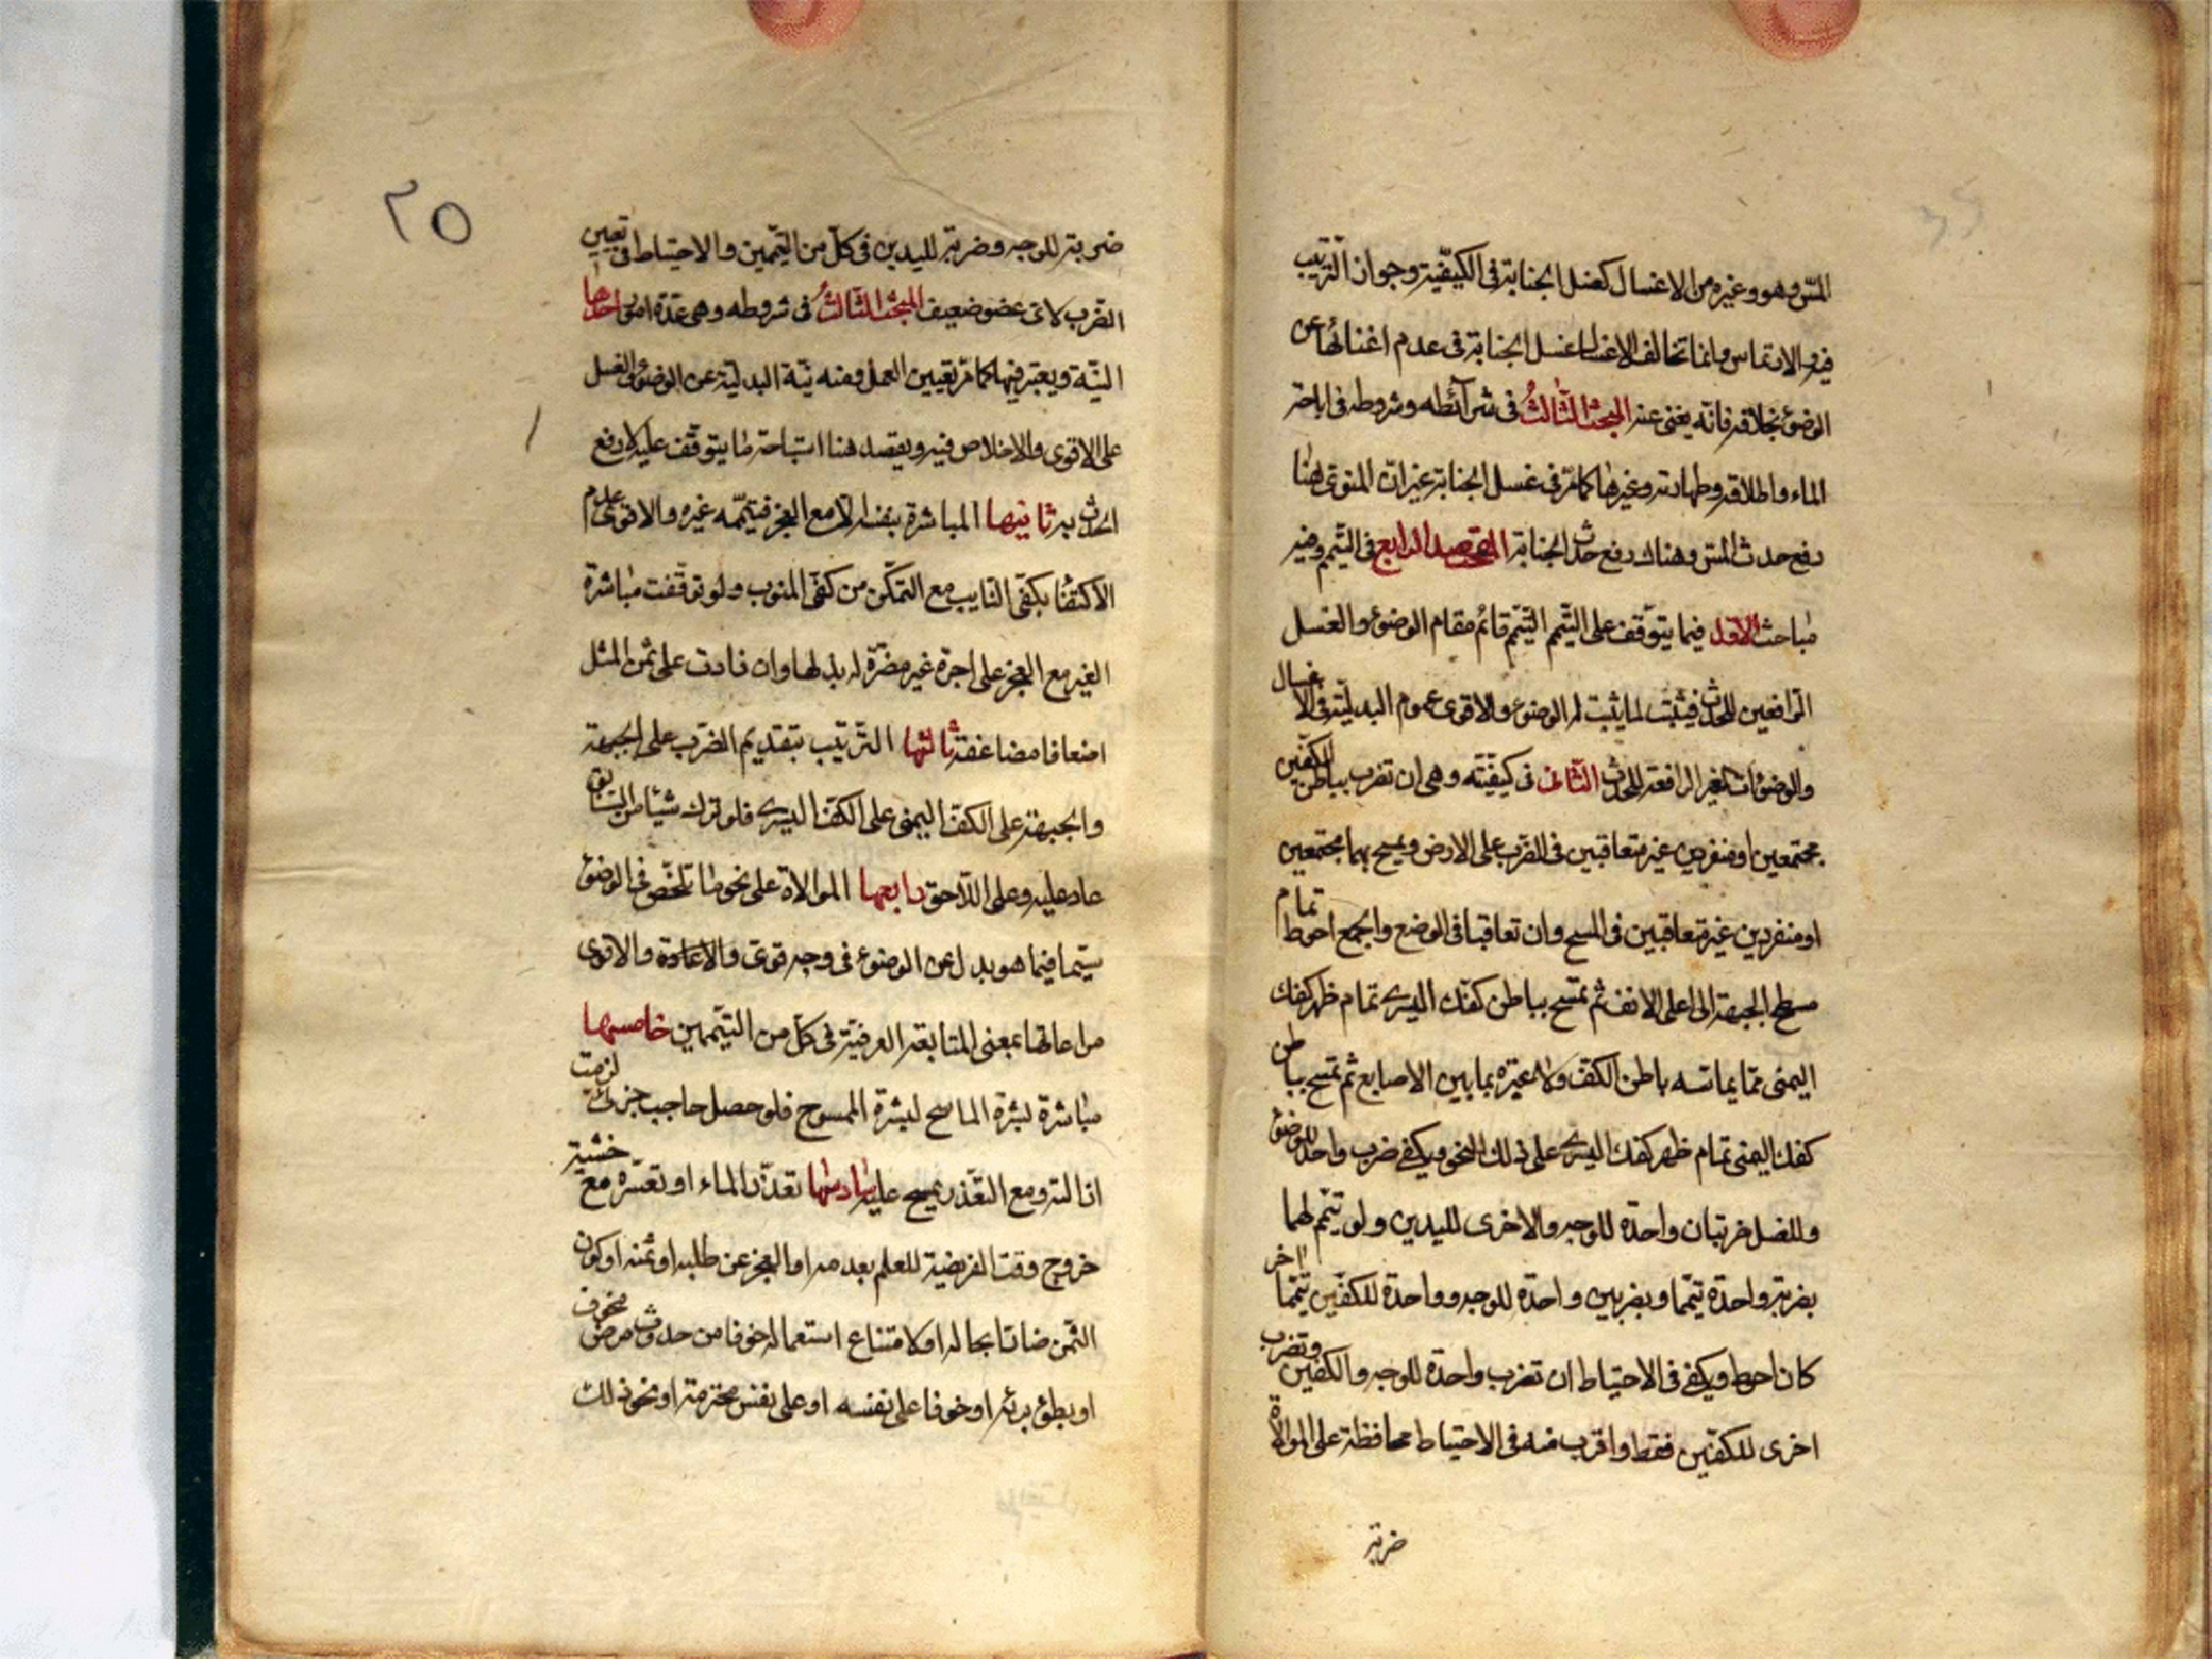 المسّ وهو وغيره من الاغسال كغسل الجنابة فى الكيفيّة وجواز الترتيب
فيه والارتماس وانما تخالف الاغسال غسل الجنابة فى عدم اغنائها عن
الوضوء بخلافه فانّه يغنى عنه المبحث الثالث فى شرائطه وشروطه فى اباحة
الماء واطلاقه وطهارته وغيرها كما مرّ فى غسل الجنابة غير انّ المنوى هنا
رفع حدث المس وهناك رفع حدث الجنابة المقصد الرابع فى التيمم وفيه
مباحث الاول فيما يتوقف على التيمم التيمم قائم مقام الوضوء والغسل
الرافعين للحدث فيثبت لما يثبت له الوضوء والاقوى عموم البدليّة فى الاغسال
والوضوءات الغير الرافعة للحدث الثانى فى كيفيّته وهى ان تضرب بباطن الكفين
مجتمعين او منفردين غير متعاقبين فى الضرب على الارض ويمسح بهما مجتمعين
او منفردين غير متعاقبين فى المسح وان تعاقبا فى الوضع والجمع احوط تمام
سطح الجبهة الى اعلى الانف ثم تمسح بباطن كفك اليسرى تمام ظهر كفك
اليمنى ممّا يماسه باطن الكف ولا عبرة بما بين الاصابع ثم تمسح بباطن
كفك اليمنى تمام ظهر كفك اليسرى على ذلك النحو ويكفى ضرب واحد للوضوء
وللغسل ضربتان واحدة للوجه والاخرى لليدين ولو تيمم لهما
بضربة واحدة تيمما وبضربين واحدة للوجه وواحدة للكفين تيمما اخر
كان احوط ويكفى فى الاحتياط ان تضرب واحدة للوجه والكفين وتضرب
اخرى للكفين فقط واقرب منه فى الاحتياط محافظة على الموالاة
ضربة
٢٥
ضربة للوجه وضربة لليدين فى كل من التيممين والاحتياط فى تعيين
الضرب لاى عضو ضعيف المبحث الثالث فى شروطه وهى عدة امور احدها
النيّة ويعتبر فيها كما مر تعيين العمل ومنه نيّة البدلية عن الوضوء او الغسل
على الاقوى والاخلاص فيه ويقصد هنا استباحة ما يتوقف عليه لا رفع
الحدث به ثانيها المباشرة بنفسه الا مع العجز فيتممه غيره والاقوى عدم
الاكتفاء بكفى النايب مع التمكن من كفى المنوب ولو توقفت مباشرة
الغير مع العجز على اجرة غير مضرة له بذلها وان زادت على ثمن المثل
اضعافا مضاعفة ثالثها الترتيب بتقديم الضرب على الجبهة
والجبهة على الكف اليمنى على الكف اليسرى فلو ترك شيئا من السابق
عاد عليه وعلى اللاحق رابعها الموالاة على نحو ما تلخص فى الوضوء
سيما فيما هو بدل عن الوضوء فى وجه قوى والاعادة والاقوى
مراعاتها بمعنى المتابعة العرفية فى كل من التيممين خامسها
مباشرة بشرة الماسح لبشرة الممسوح فلو حصل حاجب جزئى لزمت
ازالته ومع التعذر يمسح عليه سادسها تعذر الماء او تعسره مع خشية
خروج وقت الفريضة للعلم بعدمه او العجز عن طلبه او ثمنه او كون
الثمن ضارا بحاله او لامتناع استعماله خوفا من حدوث مرض مخوف
او بطوء برئه او خوفا على نفسه او على نفس محترمة او نحو ذلك